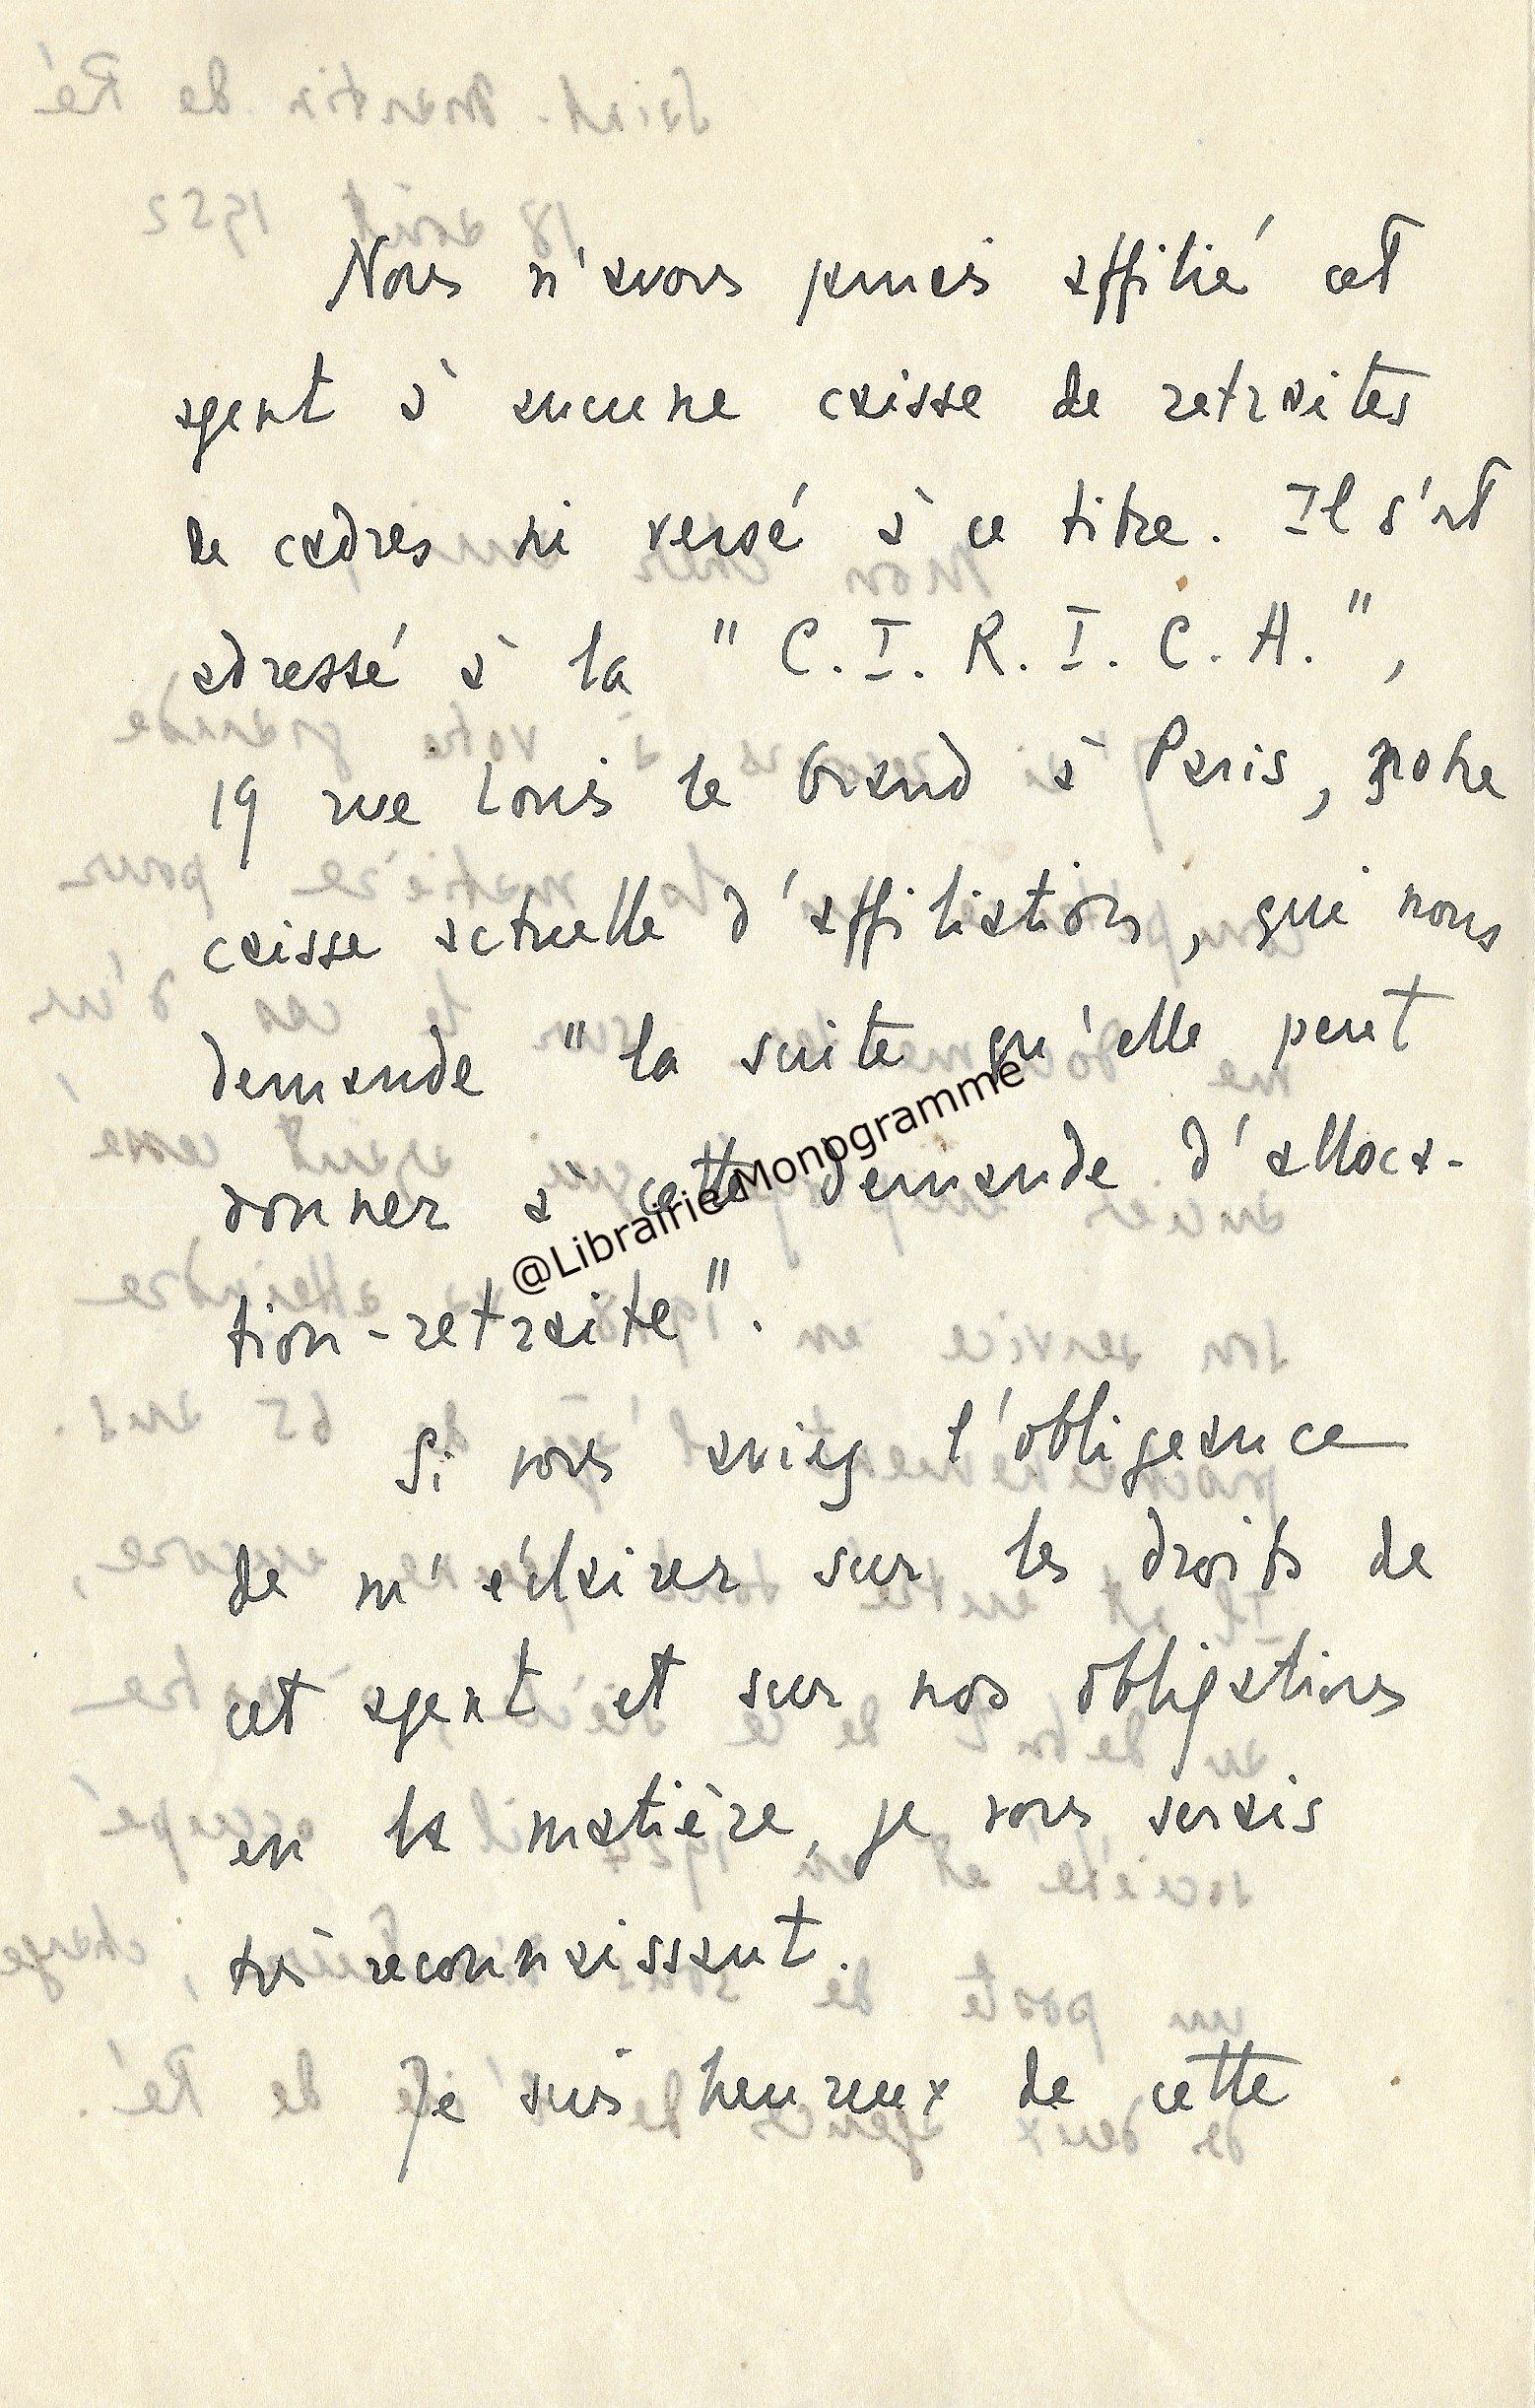 Nous n'avons jamais affilié cet
agent à aucune caisse de retraites
de cadres ni versé à ce titre. Il s'est
adressé à la "C.I.R.I.C.A.",
19 rue Louis le Grand à Paris, notre
caisse actuelle d'affiliation, qui nous
demande "la suite qu'elle peut
donner à cette demande d'alloca-
tion-retraite".
Si vous aviez l'obligeance
de m'éclairer sur les droits de
cet agent et sur nos obligations
en la matière, je vous serais
très reconnaissant.
Je suis heureux de cette
@Librairie Monogramme